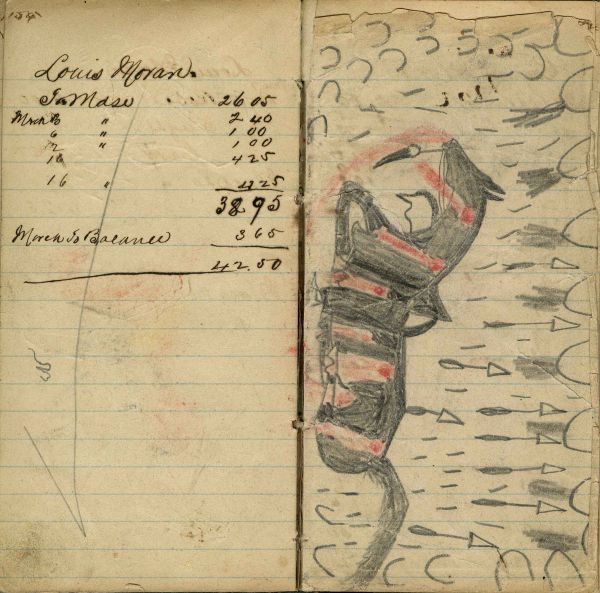 Louis Moran.
To Mdse 26 05
Mrch 3 " 2 40
6 " 1 00
12 " 1 00
16 4 25
16 " 4 25
38 95
March To Balance 3 65
42.50